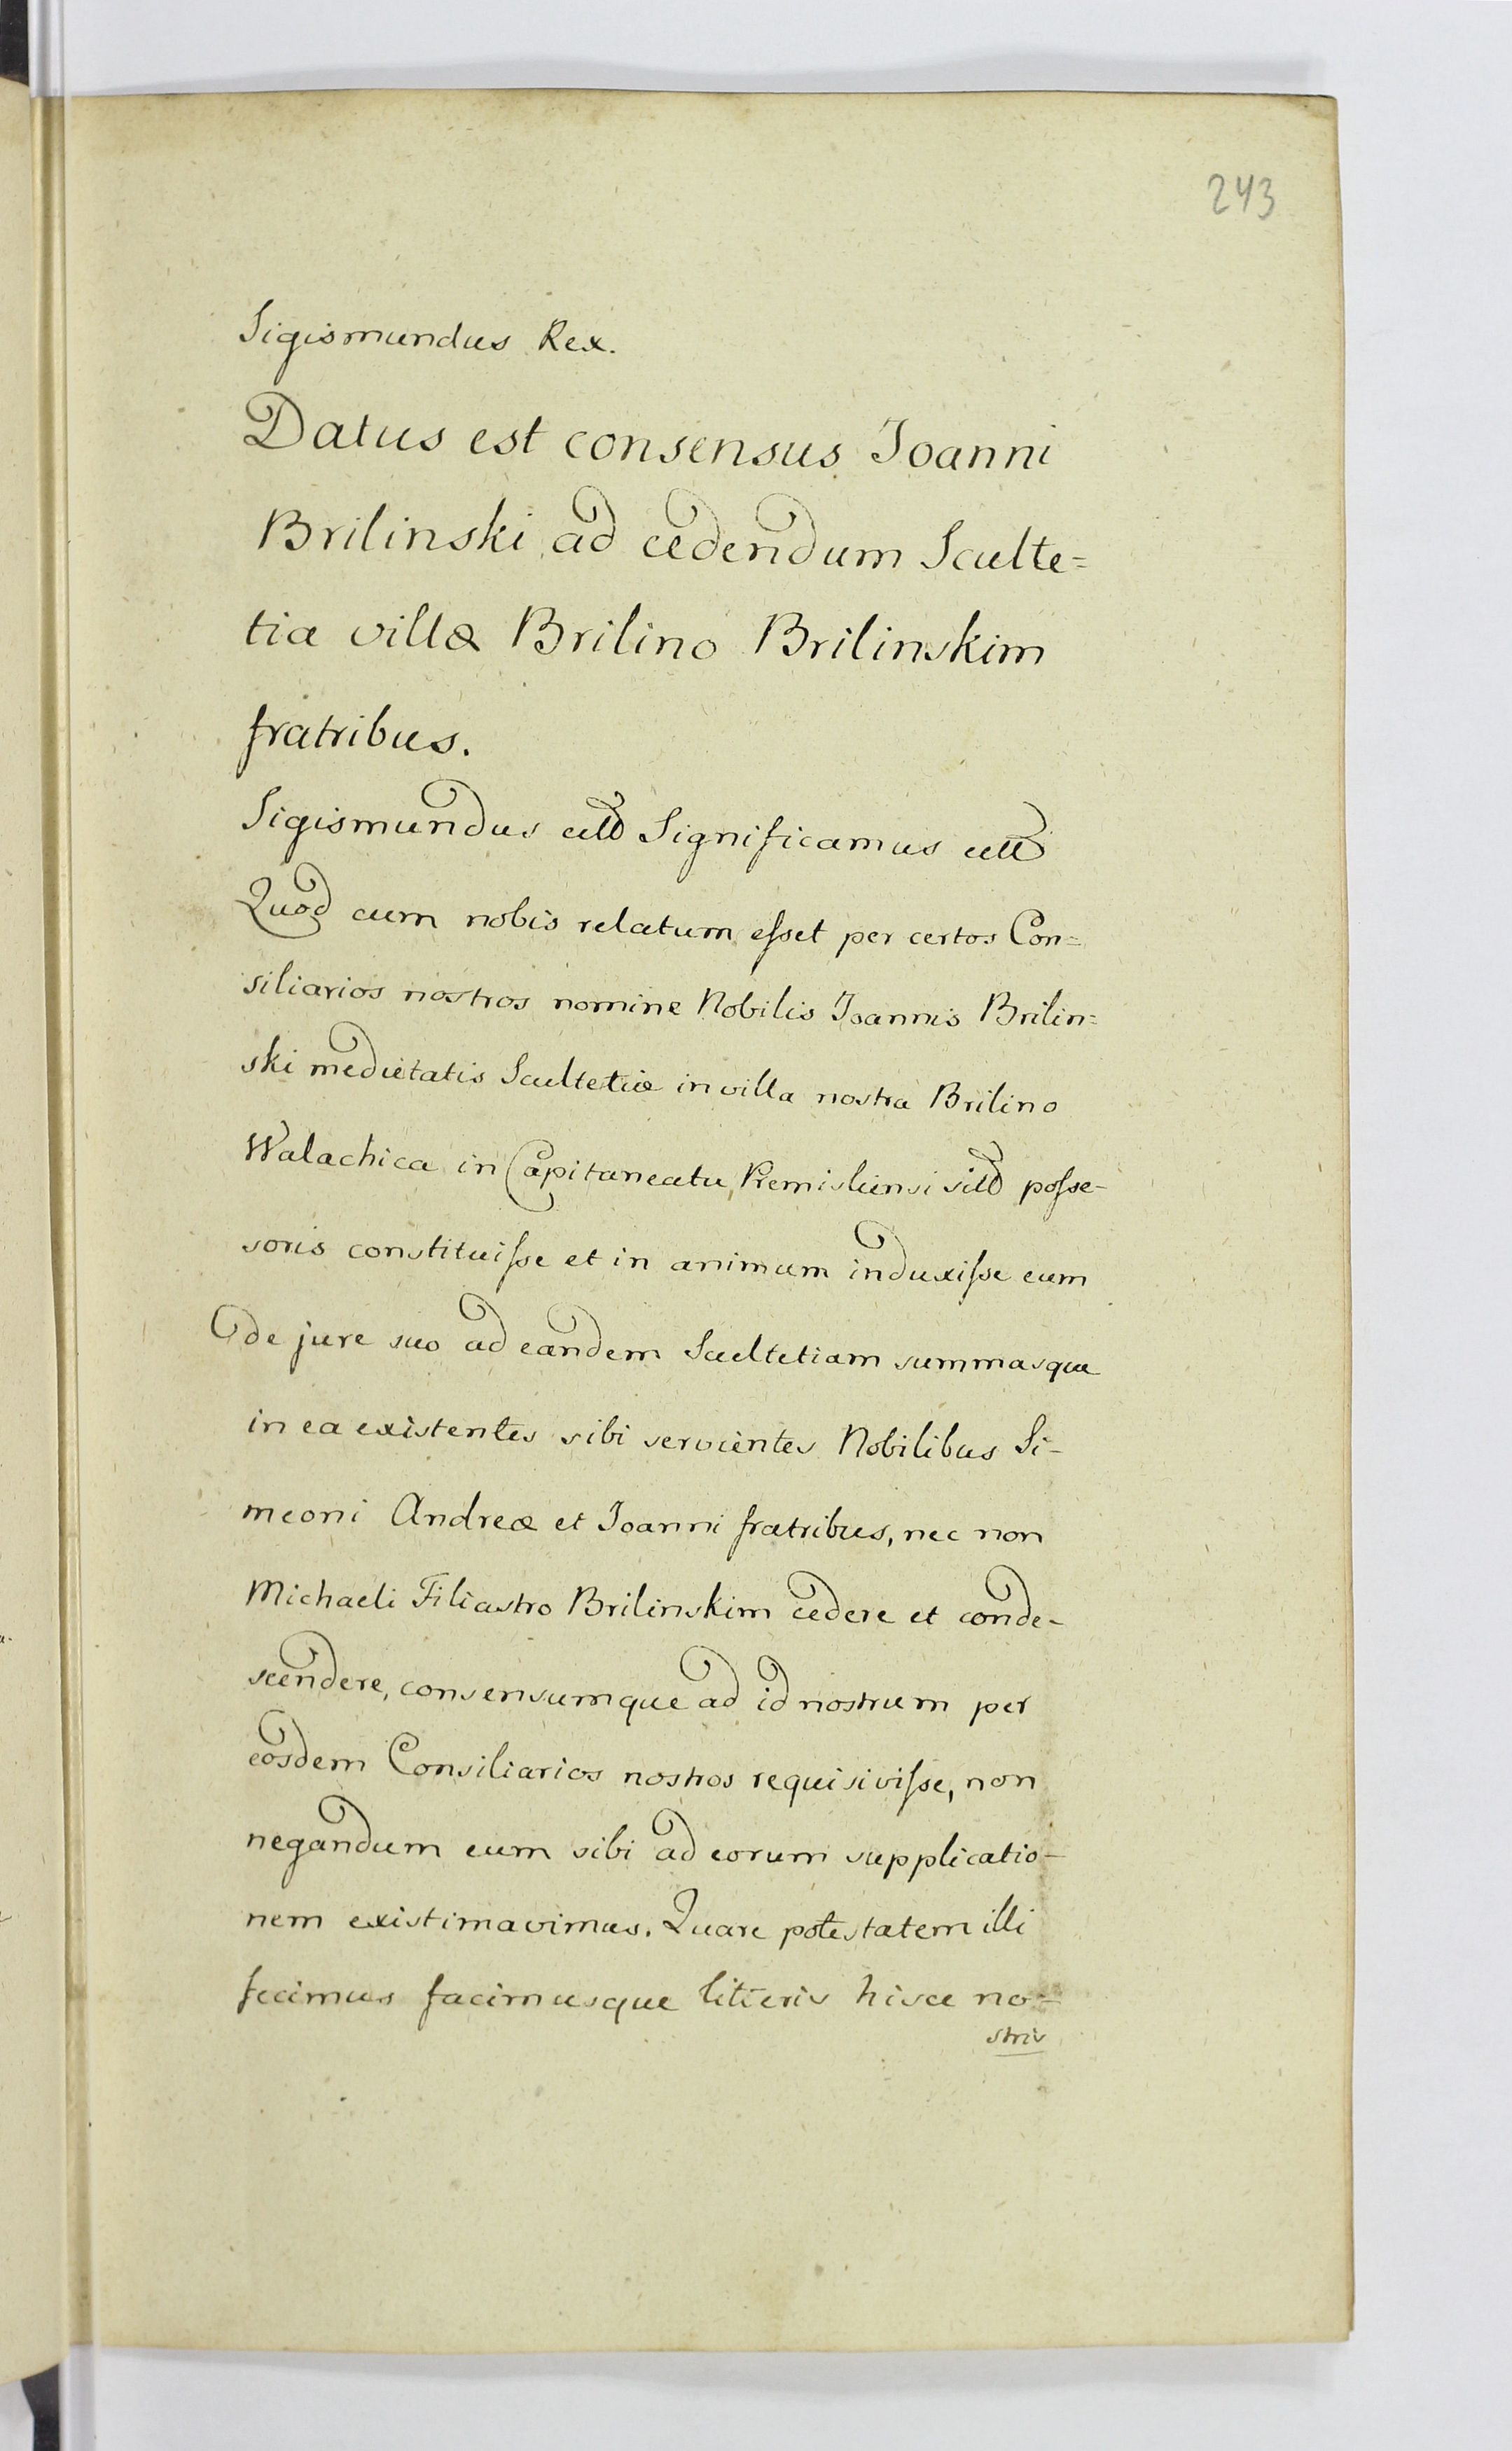 243
Sigismundus Rex.
Datus est consensus Joanni
Brilinski ad cedendum Sculte=
tiæ villæ Brilino Brilinskim
fratribus.
Sigismundus Significamus
Quod cum nobis relatum eſset per certos Con=
siliarios nostros nomine Nobilis Joannis Brilin=
ski medietatis Scultetiæ in villa nostra Brilino
Walachica in Capitaneatu Premisliensi poſse-
soris constituiſse et in animum induxiſse eum
de jure suo ad eandem Scultetiam summasque
in ea existentes sibi servientes Nobilibus Si-
meoni Andreæ et Joanni fratribus, nec non
Michaeli Filiastro Brilinskim cedere et conde-
scendere, consensumque ad id nostrum per
eosdem Consiliarios nostros requisiviſse, non
negandum eum sibi ad eorum supplicatio-
nem existimavimus. Quare potestatem illi
fecimus facimusque literis hisce no-
stris